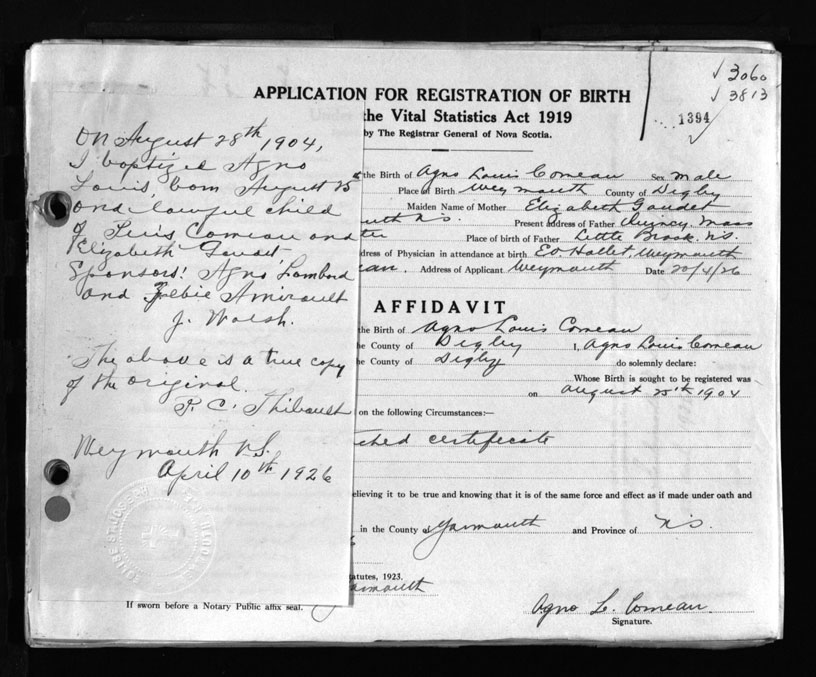 3060
3813
1394
APPLICATION FOR REGISTRATION OF BIRTH
the Vital Statistics Act 1919
by The Registrar General of Nova Scotia.
On August 28th 1904,
I baptized Agno
Louis, born August 25
and lawful child
of Louis Comeau and
Elizabeth Gaudet
Sponsors: Agno Lombard
and Zebie Amirault
J. Walsh.
The above is a true copy
of the original.
P. C. Thibault
Weymouth N.S.
April 10th 1926
the Birth of Agno Louis Comeau Sex Male
Place of Birth Weymouth County of Digby
Maiden Name of Mother Elizabeth Gaudet
uth N.S. Present address of Father Quincy, Mass
Place of birth of Father Little Brook. N.S.
dress of Physician in attendance at birth Ed. Hallet, Weymouth
au. Address of Applicant Weymouth Date 20/4/26
AFFIDAVIT
the Birth of Agno Louis Comeau
the County of Digby I, Agno Louis Comeau
the County of Digby do solemnly declare:
Whose Birth is sought to be registered was
on August 25th 1904
on the following Circumstances:—
ched certificate
elieving it to be true and knowing that it is of the same force and effect as if made under oath and
in the County of Yarmouth and Province of N.S.
tatutes, 1923.
Yarmouth
If sworn before a Notary Public affix seal.
Agno L. Comeau
Signature.